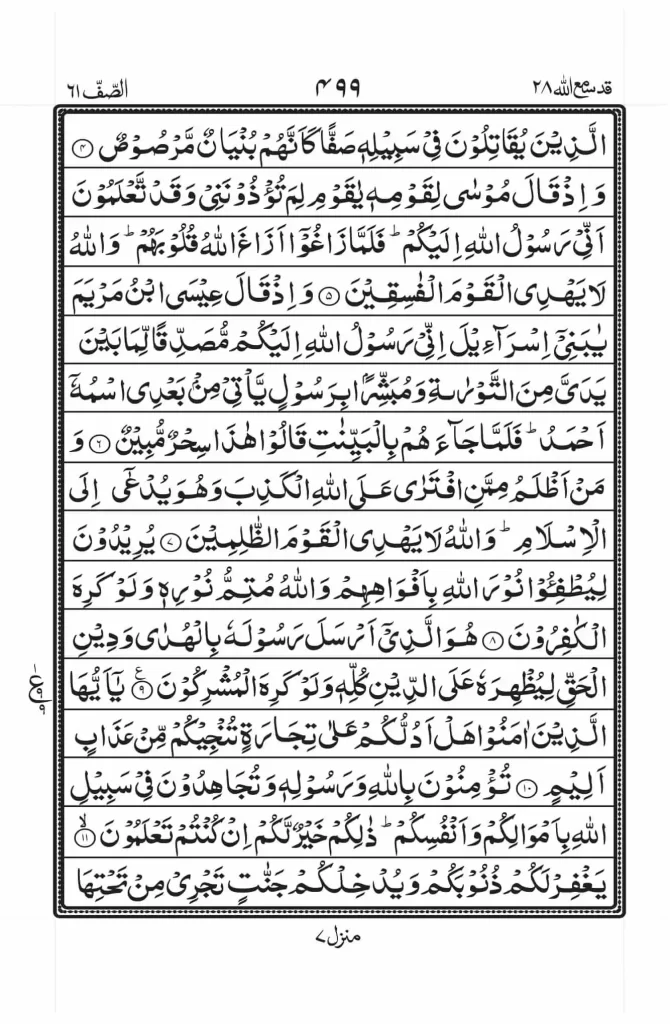 قد سمع الله ۲۸
۴۹۹
الصّفّ ۶۱
الَّذِیْنَ یُقَاتِلُوْنَ فِیْ سَبِیْلِهٖ صَفًّا كَاَنَّهُمْ بُنْیَانٌ مَّرْصُوْصٌ ۝۴
وَ اِذْ قَالَ مُوْسٰی لِقَوْمِهٖ یٰقَوْمِ لِمَ تُؤْذُوْنَنِیْ وَقَدْ تَّعْلَمُوْنَ
اَنِّیْ رَسُوْلُ اللهِ اِلَیْكُمْ ؕ فَلَمَّا زَاغُوْۤا اَزَاغَ اللهُ قُلُوْبَهُمْ ؕ وَاللهُ
لَا یَهْدِی الْقَوْمَ الْفٰسِقِیْنَ ۝۵ وَ اِذْ قَالَ عِیْسَی ابْنُ مَرْیَمَ
یٰبَنِیْۤ اِسْرَآءِیْلَ اِنِّیْ رَسُوْلُ اللهِ اِلَیْكُمْ مُّصَدِّقًا لِّمَا بَیْنَ
یَدَیَّ مِنَ التَّوْرٰىةِ وَ مُبَشِّرًۢا بِرَسُوْلٍ یَّاْتِیْ مِنْۢ بَعْدِی اسْمُهٗۤ
اَحْمَدُ ؕ فَلَمَّا جَآءَهُمْ بِالْبَیِّنٰتِ قَالُوْا هٰذَا سِحْرٌ مُّبِیْنٌ ۝۶ وَ
مَنْ اَظْلَمُ مِمَّنِ افْتَرٰی عَلَی اللهِ الْكَذِبَ وَ هُوَ یُدْعٰۤی اِلَی
الْاِسْلَامِ ؕ وَاللهُ لَا یَهْدِی الْقَوْمَ الظّٰلِمِیْنَ ۝۷ یُرِیْدُوْنَ
لِیُطْفِـُٔوْا نُوْرَ اللهِ بِاَفْوَاهِهِمْ وَاللهُ مُتِمُّ نُوْرِهٖ وَ لَوْ كَرِهَ
الْكٰفِرُوْنَ ۝۸ هُوَ الَّذِیْۤ اَرْسَلَ رَسُوْلَهٗ بِالْهُدٰی وَ دِیْنِ
الْحَقِّ لِیُظْهِرَهٗ عَلَی الدِّیْنِ كُلِّهٖ وَ لَوْ كَرِهَ الْمُشْرِكُوْنَ ۝۹ ع یٰۤاَیُّهَا
الَّذِیْنَ اٰمَنُوْا هَلْ اَدُلُّكُمْ عَلٰی تِجَارَةٍ تُنْجِیْكُمْ مِّنْ عَذَابٍ
اَلِیْمٍ ۝۱۰ تُؤْمِنُوْنَ بِاللهِ وَ رَسُوْلِهٖ وَ تُجَاهِدُوْنَ فِیْ سَبِیْلِ
اللهِ بِاَمْوَالِكُمْ وَ اَنْفُسِكُمْ ؕ ذٰلِكُمْ خَیْرٌ لَّكُمْ اِنْ كُنْتُمْ تَعْلَمُوْنَ ۝۱۱ۙ
یَغْفِرْ لَكُمْ ذُنُوْبَكُمْ وَ یُدْخِلْكُمْ جَنّٰتٍ تَجْرِیْ مِنْ تَحْتِهَا
منزل ۷